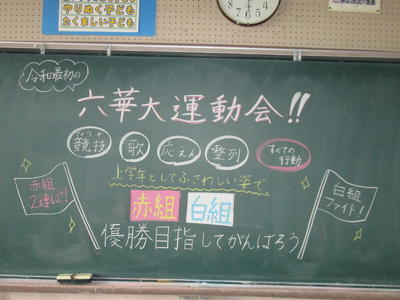 やりぬく子ども
たくましい子ども
令和最初の
六華大運動会!!
競技 歌 応えん 整列 すべての行動
上学年としてふさわしい姿で
赤組 2連ぱ!
赤組 白組
白組 ファイト!
優勝目指してがんばろう